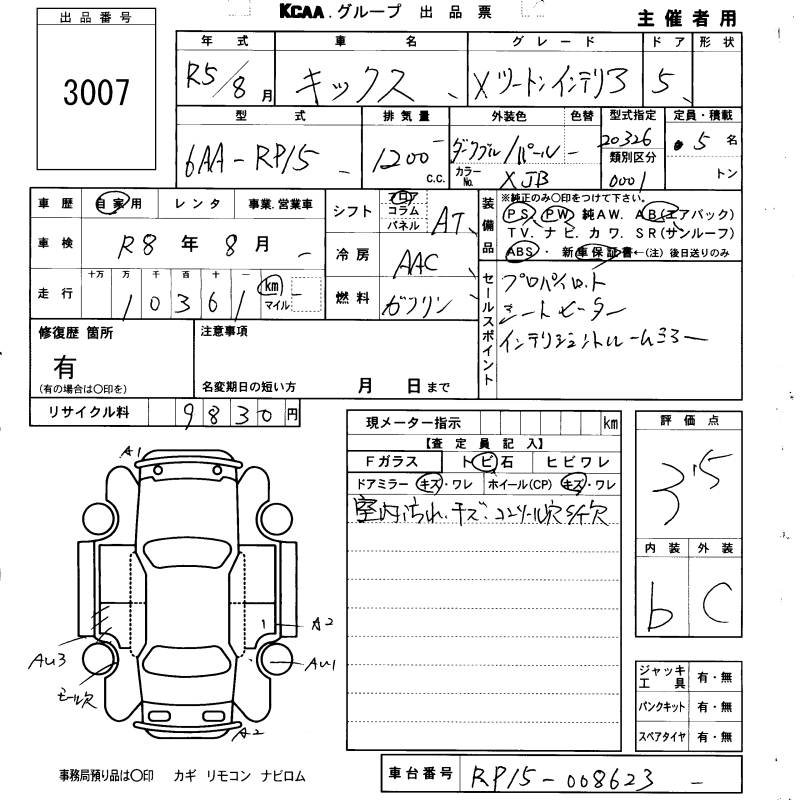 KCAA.グループ 出品票
主催者用
出品番号
3007
年式 車名 グレード ドア 形状
R5/8月 キックス Xツートンインテリア 5
型式 排気量 外装色 色替 型式指定 定員・積載
6AA-RP15 1200 c.c. ダークブルー/パール - 20326 5名
カラーNo. XJB 類別区分 0001 トン
車歴 自家用 レンタ 事業.営業車
車検 R8年8月
走行 十万 万 千 百 十 一
10361 km マイル
シフト フロア コラム パネル AT
冷房 AAC
燃料 ガソリン
装備品 ※純正のみ〇印をつけて下さい。
PS. PW. 純AW. AB(エアバック)
TV. ナビ. カワ. SR(サンルーフ)
ABS・新車保証書←(注)後日送りのみ
セールスポイント
プロパイロット
シートヒーター
インテリジェントルームミラー
修復歴 箇所
有
(有の場合は〇印を)
注意事項
名変期日の短い方 月 日まで
リサイクル料 9830円
現メーター指示 km
【査定員記入】
Fガラス トビ石 ヒビワレ
ドアミラー キズ・ワレ ホイール(CP) キズ・ワレ
室内汚れ.キズ.コンソール穴
評価点
3.5
内装 外装
b C
A1
A2
AU3
AU1
モール穴
A2
ジャッキ工具 有・無
パンクキット 有・無
スペアタイヤ 有・無
事務局預り品は〇印 カギ リモコン ナビロム
車台番号 RP15-008623